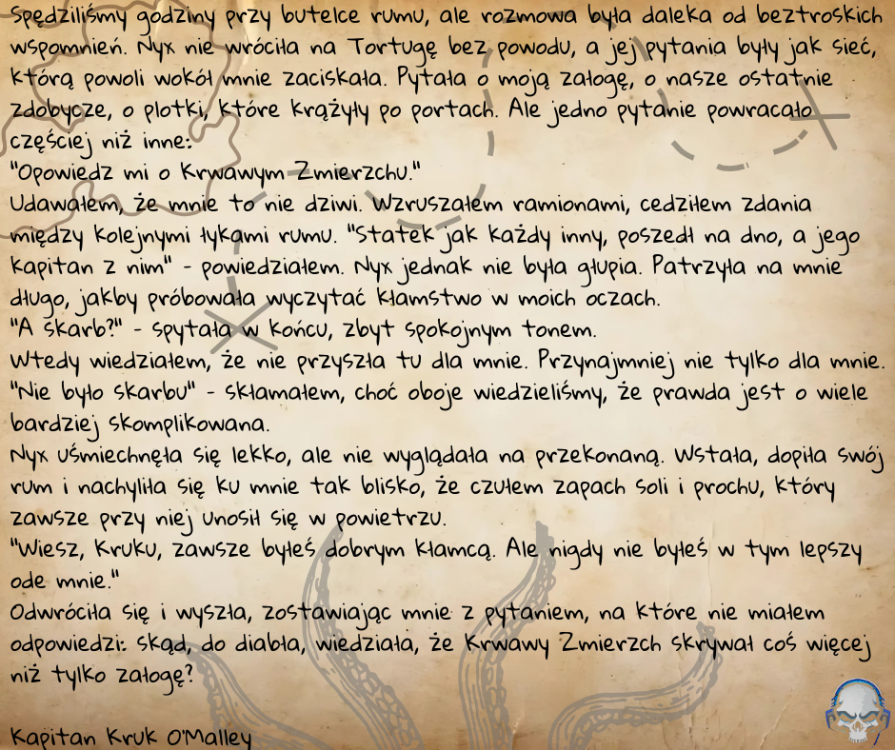 Spędziliśmy godziny przy butelce rumu, ale rozmowa była daleka od beztroskich
wspomnień. Nyx nie wróciła na Tortugę bez powodu, a jej pytania były jak sieć,
którą powoli wokół mnie zaciskała. Pytała o moją załogę, o nasze ostatnie
zdobycze, o plotki, które krążyły po portach. Ale jedno pytanie powracało
częściej niż inne:
"Opowiedz mi o Krwawym Zmierzchu."
Udawałem, że mnie to nie dziwi. Wzruszałem ramionami, cedziłem zdania
między kolejnymi łykami rumu. "Statek jak każdy inny, poszedł na dno, a jego
kapitan z nim" - powiedziałem. Nyx jednak nie była głupia. Patrzyła na mnie
długo, jakby próbowała wyczytać kłamstwo w moich oczach.
"A skarb?" - spytała w końcu, zbyt spokojnym tonem.
Wtedy wiedziałem, że nie przyszła tu dla mnie. Przynajmniej nie tylko dla mnie.
"Nie było skarbu" - skłamałem, choć oboje wiedzieliśmy, że prawda jest o wiele
bardziej skomplikowana.
Nyx uśmiechnęła się lekko, ale nie wyglądała na przekonaną. Wstała, dopiła swój
rum i nachyliła się ku mnie tak blisko, że czułem zapach soli i prochu, który
zawsze przy niej unosił się w powietrzu.
"Wiesz, Kruku, zawsze byłeś dobrym kłamcą. Ale nigdy nie byłeś w tym lepszy
ode mnie."
Odwróciła się i wyszła, zostawiając mnie z pytaniem, na które nie miałem
odpowiedzi: skąd, do diabła, wiedziała, że Krwawy Zmierzch skrywał coś więcej
niż tylko załogę?
Kapitan Kruk O'Malley